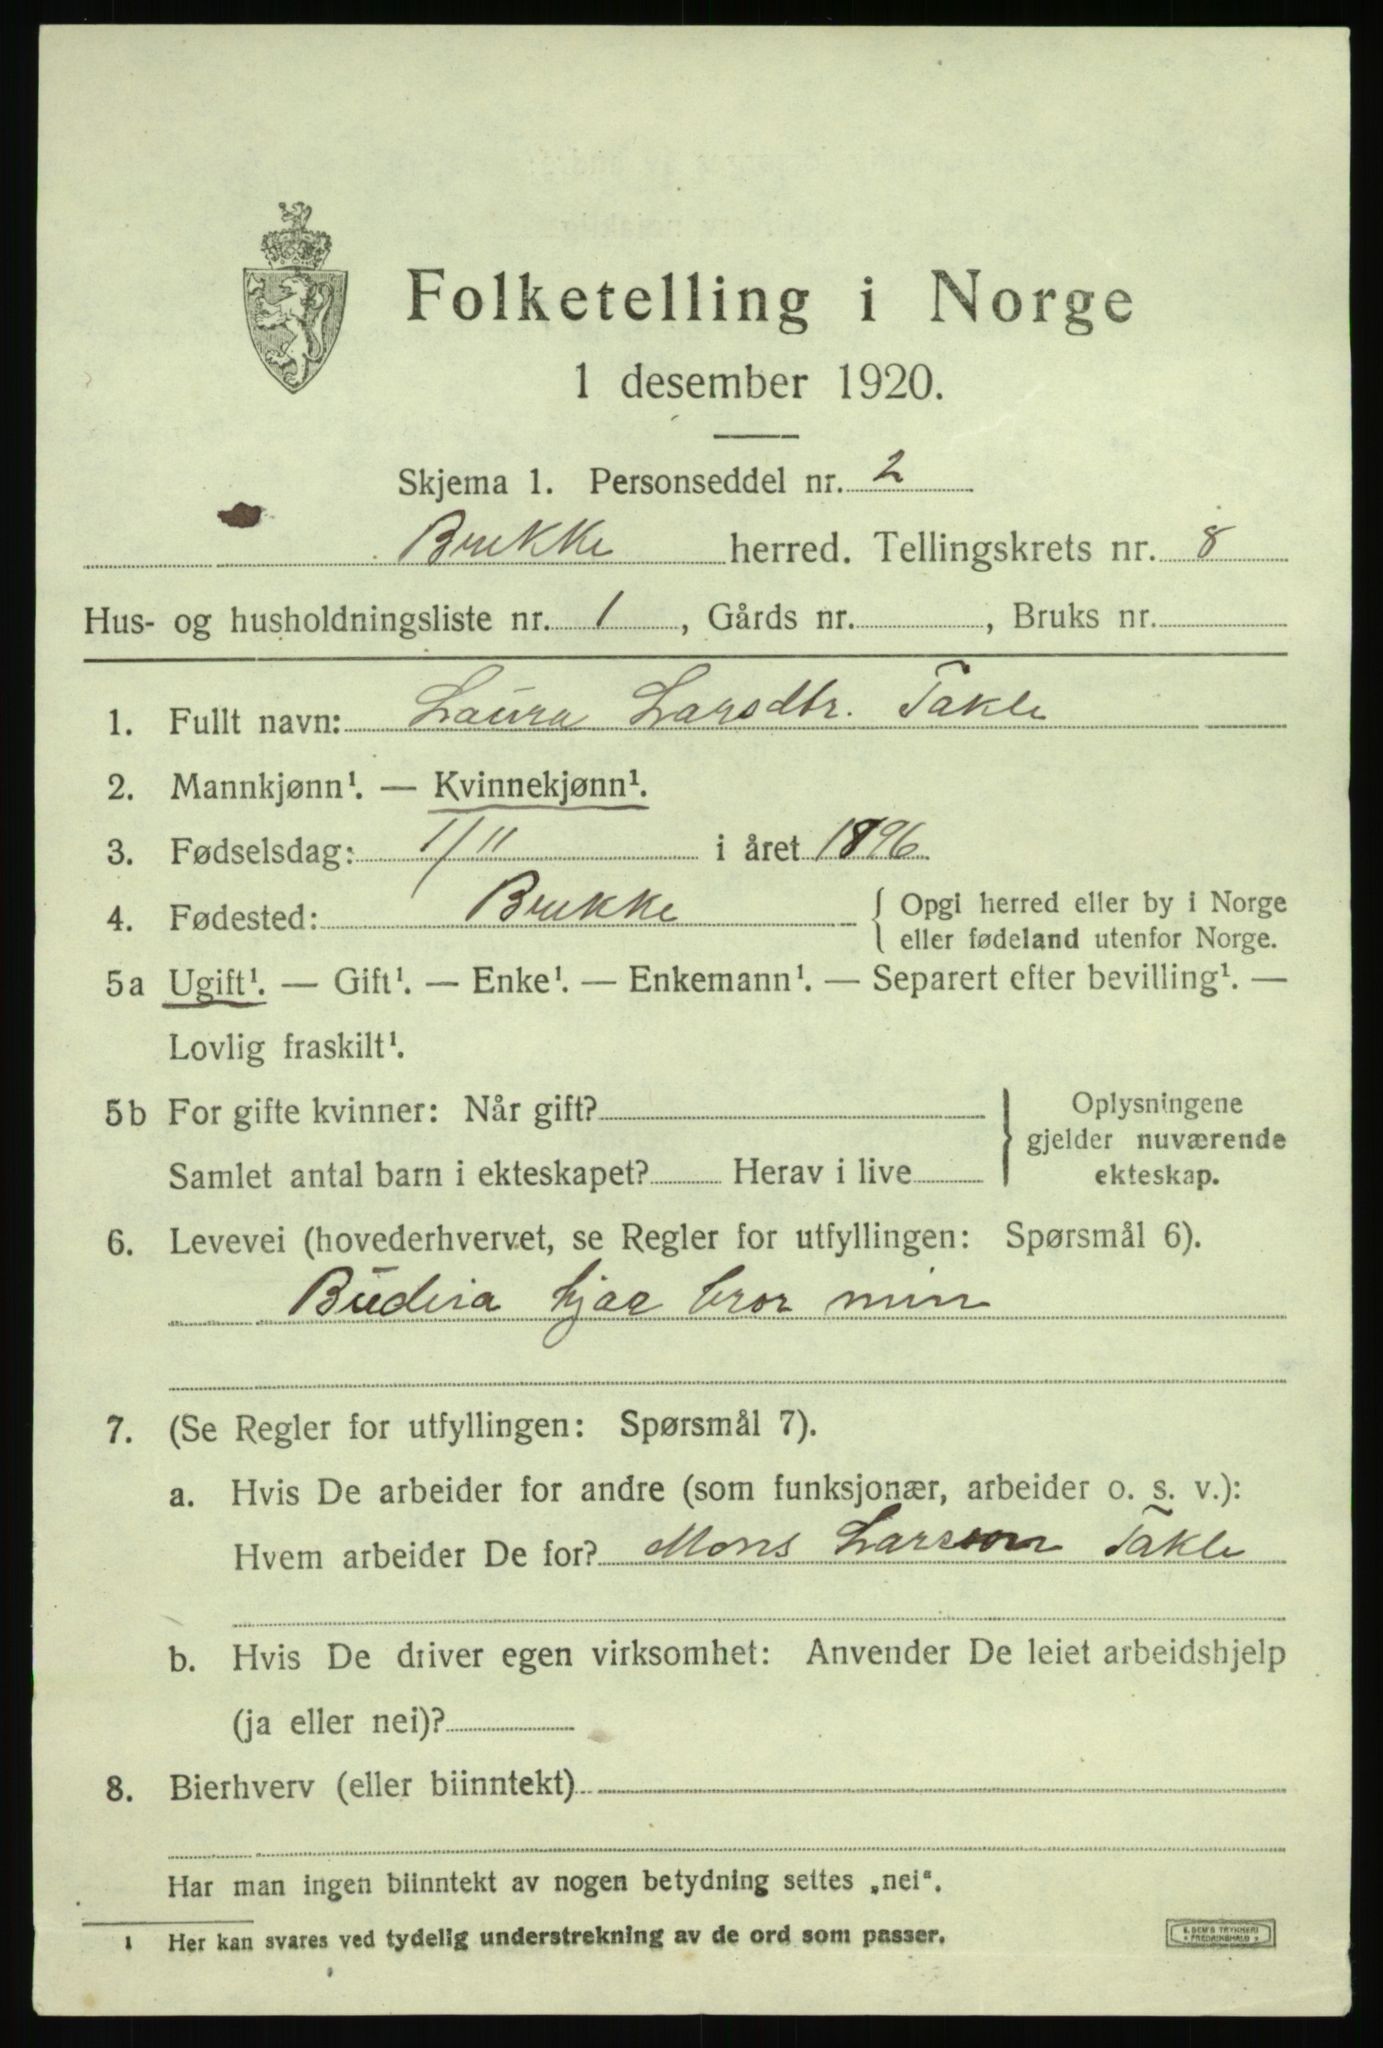 Folketelling i Norge
1 desember 1920.
Skjema 1. Personseddel nr. 2
Brekke herred. Tellingskrets nr. 8
Hus- og husholdningsliste nr. 1, Gårds nr. , Bruks nr.
1. Fullt navn: Laura Larsdtr. Takle
2. Mannkjønn¹. — Kvinnekjønn¹.
3. Fødselsdag: 1/11 i året 1896
4. Fødested: Brekke { Opgi herred eller by i Norge
eller fødeland utenfor Norge.
5a Ugift¹. — Gift¹. — Enke¹. — Enkemann¹. — Separert efter bevilling¹. —
Lovlig fraskilt¹.
5b For gifte kvinner: Når gift? } Oplysningene
gjelder nuværende
Samlet antal barn i ekteskapet? Herav i live ekteskap.
6. Levevei (hovederhvervet, se Regler for utfyllingen: Spørsmål 6).
Budeia hjaa bror min
7. (Se Regler for utfyllingen: Spørsmål 7).
a. Hvis De arbeider for andre (som funksjonær, arbeider o. s. v.):
Hvem arbeider De for? Mons Larsson Takle
b. Hvis De driver egen virksomhet: Anvender De leiet arbeidshjelp
(ja eller nei)?
8. Bierhverv (eller biinntekt)
Har man ingen biinntekt av nogen betydning settes „nei“.
1 Her kan svares ved tydelig understrekning av de ord som passer.
E. SEM'S TRYKKERI
* FREDRIKSHALD *